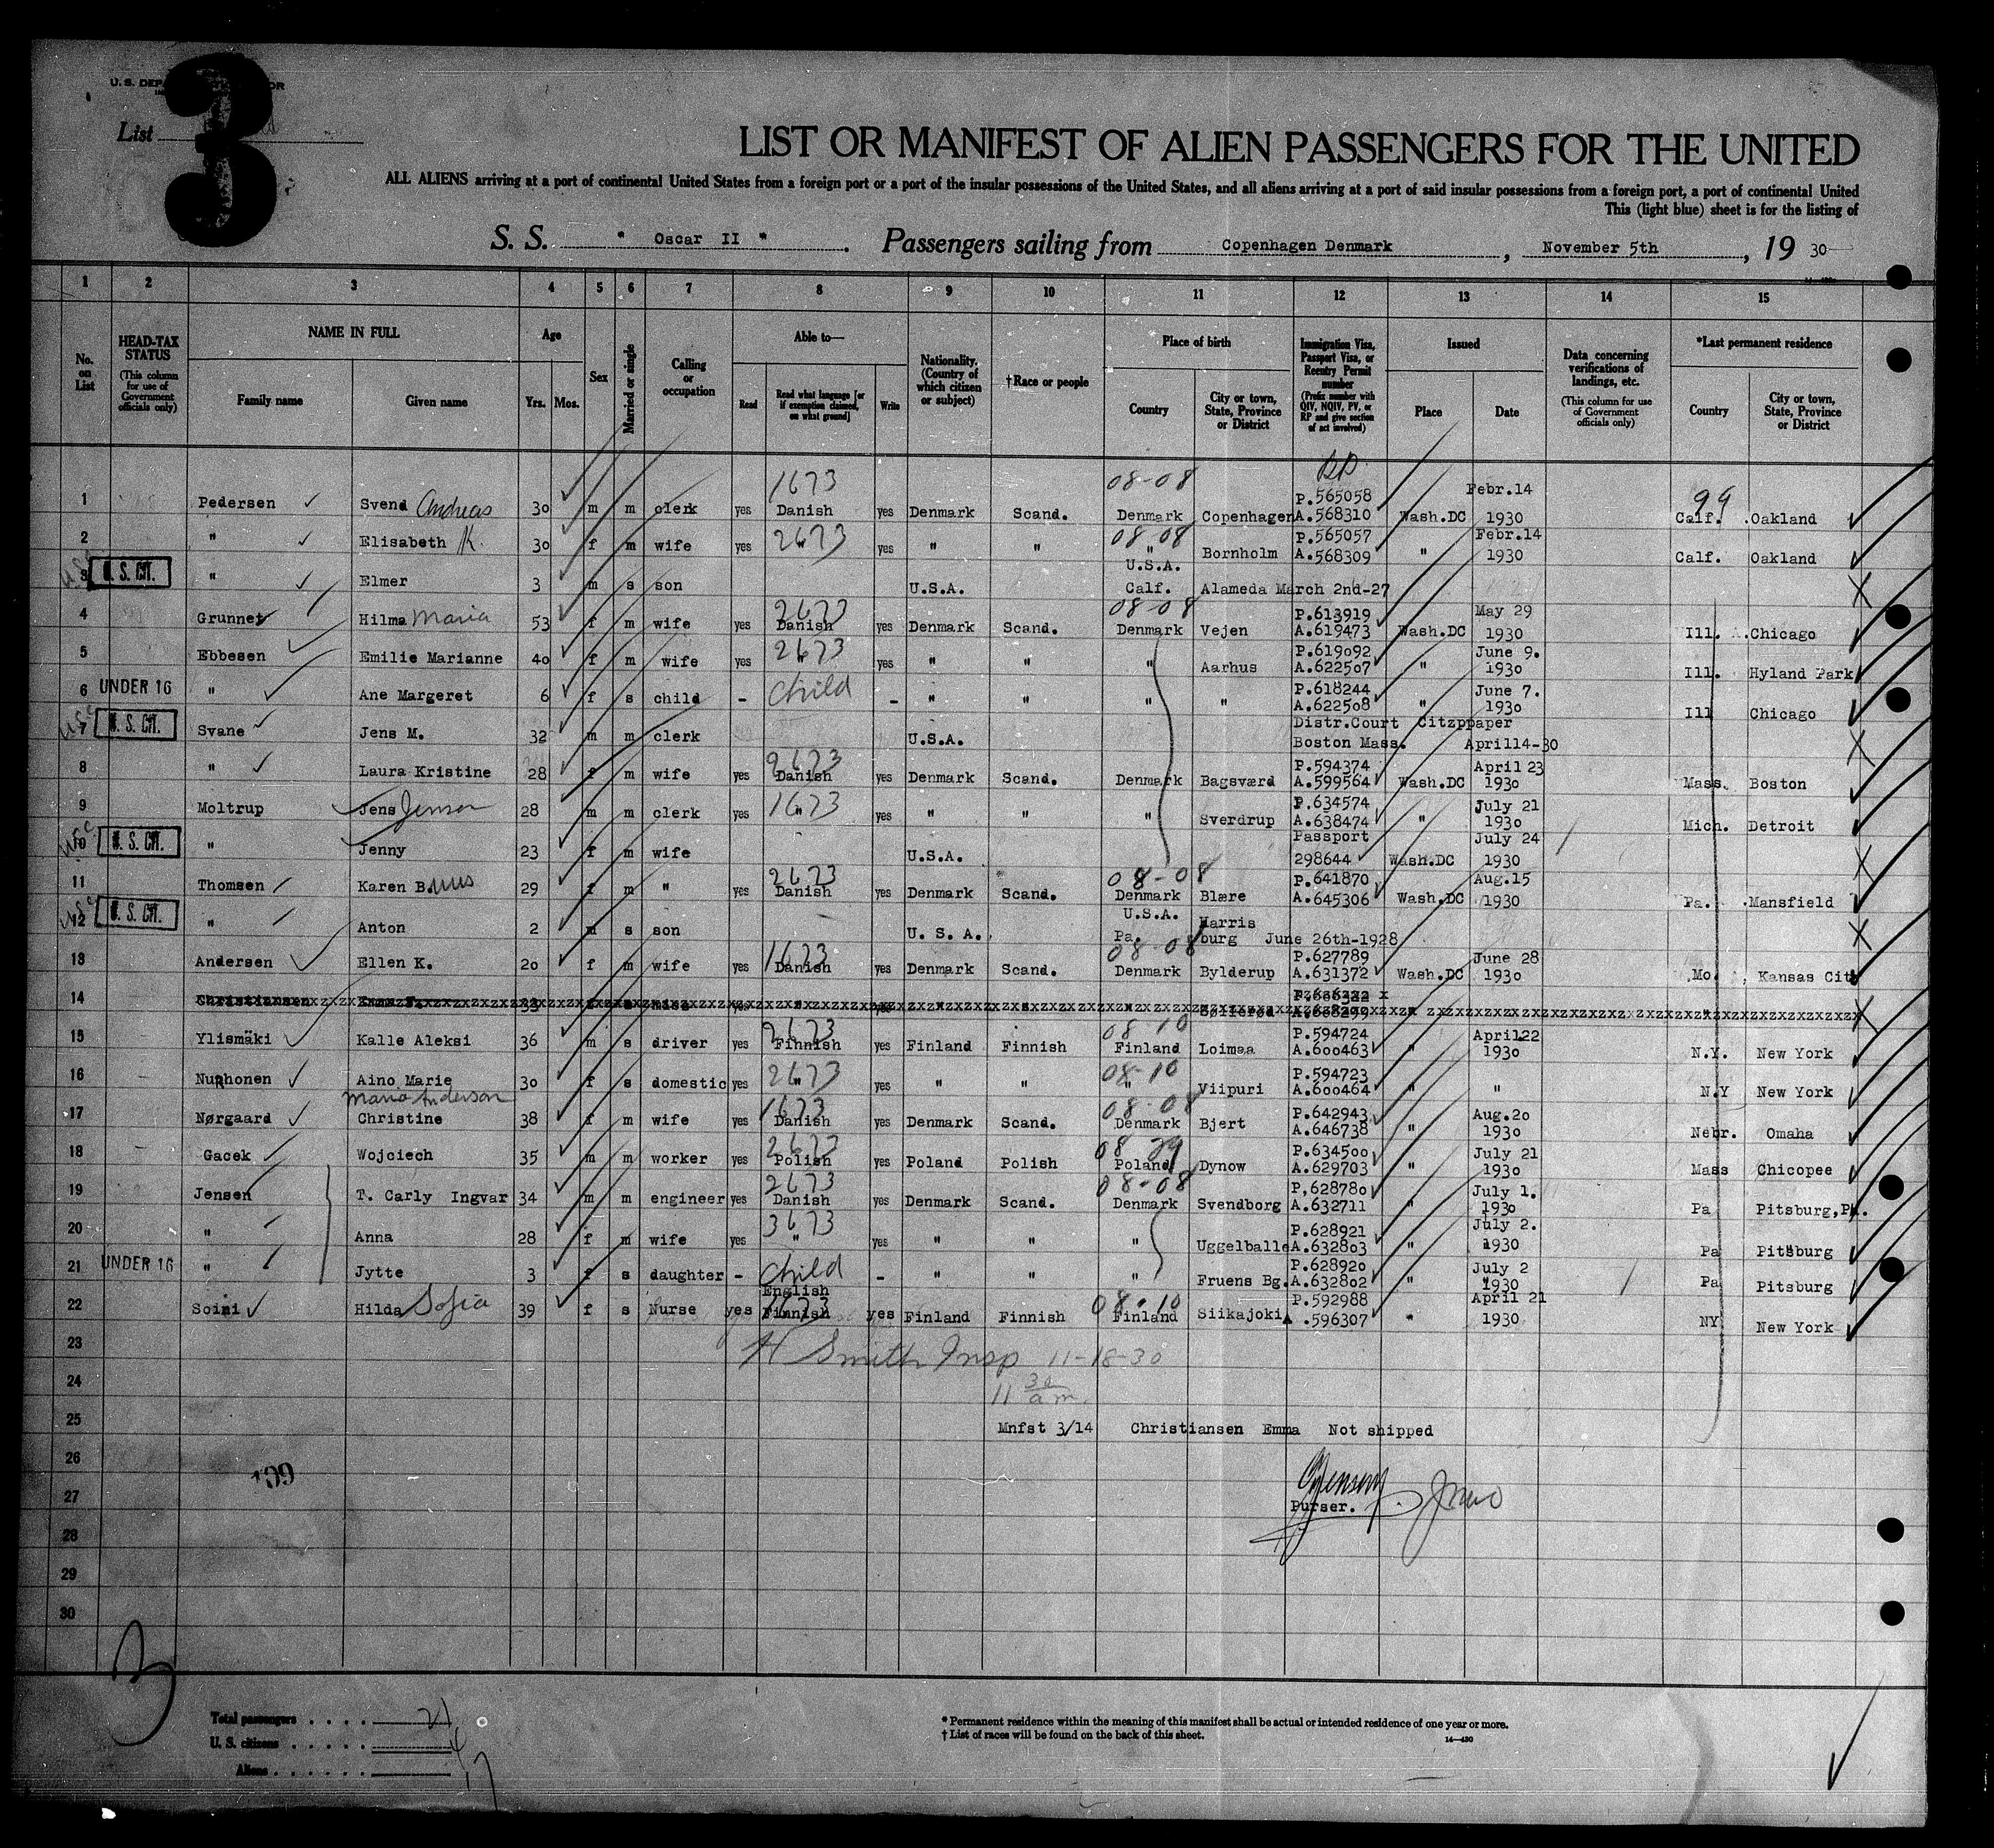 3
List
LIST OR MANIFEST OF ALIEN PASSENGERS FOR THE UNITED
ALL ALIENS arriving at a port of continental United States from a foreign port or a port of the insular possessions of the United States, and all aliens arriving at a port of said insular possessions from a foreign port, a port of continental United
This (light blue) sheet is for the listing of
S. S. " Oscar II " . Passengers sailing from Copenhagen Denmark , November 5th , 19 30
1 2 3 4 5 6 7 8 9 10 11 12 13 14 15
No. on List
HEAD-TAX STATUS (This column for use of Government officials only)
NAME IN FULL Family name Given name
Age Yrs. Mos.
Sex
Married or single
Calling or occupation
Able to— Read Read what language [or if exemption claimed, on what ground] Write
Nationality. (Country of which citizen or subject)
†Race or people
Place of birth Country City or town, State, Province or District
Immigration Visa, Passport Visa, or Reentry Permit number (Prefix number with QIV, NQIV, PV, or RP and give section of act involved)
Issued Place Date
Data concerning verifications of landings, etc. (This column for use of Government officials only)
*Last permanent residence Country City or town, State, Province or District
1 Pedersen Svend Andreas 30 m m clerk yes 1673 Danish yes Denmark Scand. 08-08 Denmark Copenhagen P.565058 A.568310 Wash.DC Febr.14 1930 99 Calf. Oakland
2 " Elisabeth K. 30 f m wife yes 2673 " yes " " 08-08 " Bornholm P.565057 A.568309 " Febr.14 1930 Calf. Oakland
3 U. S. CIT. " Elmer 3 m s son U.S.A. U.S.A. Calf. Alameda March 2nd-27
4 Grunnet Hilma Maria 53 f m wife yes 2673 Danish yes Denmark Scand. 08-08 Denmark Vejen P.613919 A.619473 Wash.DC May 29 1930 Ill. Chicago
5 Ebbesen Emilie Marianne 40 f m wife yes 2673 " yes " " " Aarhus P.619092 A.622507 " June 9. 1930 Ill. Hyland Park
6 UNDER 16 " Ane Margeret 6 f s child - Child - " " " " P.618244 A.622508 " June 7. 1930 Ill Chicago
7 U. S. CIT. Svane Jens M. 32 m m clerk U.S.A. Distr.Court Citzppaper Boston Mass. April14-30
8 " Laura Kristine 28 f m wife yes 2673 Danish yes Denmark Scand. Denmark Bagsværd P.594374 A.599564 Wash.DC April 23 1930 Mass. Boston
9 Moltrup Jens Jensen 28 m m clerk yes 1673 " yes " " " Sverdrup P.634574 A.638474 " July 21 1930 Mich. Detroit
10 U. S. CIT. " Jenny 23 f m wife U.S.A. Passport 298644 Wash.DC July 24 1930
11 Thomsen Karen B. 29 f m " yes 2673 Danish yes Denmark Scand. 08-08 Denmark Blære P.641870 A.645306 Wash.DC Aug.15 1930 Pa. Mansfield
12 U. S. CIT. " Anton 2 m s son U. S. A. U.S.A. Pa. Harris burg June 26th-1928
13 Andersen Ellen K. 20 f m wife yes 1673 Danish yes Denmark Scand. 08-08 Denmark Bylderup P.627789 A.631372 Wash.DC June 28 1930 Mo. Kansas City
14 Christiansen
15 Ylismäki Kalle Aleksi 36 m s driver yes 2673 Finnish yes Finland Finnish 08 10 Finland Loimaa P.594724 A.600463 " April22 1930 N.Y. New York
16 Nuphonen Aino Marie 30 f s domestic yes 2673 " yes " " 08-10 " Viipuri P.594723 A.600464 " " N.Y New York
17 Nørgaard Maria Anderson Christine 38 f m wife yes 1673 Danish yes Denmark Scand. 08-08 Denmark Bjert P.642943 A.646738 " Aug.20 1930 Nebr. Omaha
18 Gacek Wojciech 35 m m worker yes 2673 Polish yes Poland Polish 08 29 Poland Dynow P.634500 A.629703 " July 21 1930 Mass Chicopee
19 Jensen T. Carly Ingvar 34 m m engineer yes 2673 Danish yes Denmark Scand. 08-08 Denmark Svendborg P,628780 A.632711 " July 1. 1930 Pa Pitsburg,Pa.
20 " Anna 28 f m wife yes 3673 " yes " " " Uggelballe P.628921 A.632803 " July 2. 1930 Pa Pitsburg
21 UNDER 16 " Jytte 3 f s daughter - Child - " " " Fruens Bg. P.628920 A.632802 " July 2 1930 Pa Pitsburg
22 Soini Hilda Sofia 39 f s Nurse yes English Finnish 1673 yes Finland Finnish 08-10 Finland Siikajoki P.592988 A.596307 " April 21 1930 NY New York
23 H Smith Insp 11-18-30
24 11 30 a m.
25 Mnfst 3/14 Christiansen Emma Not shipped
26
27 Purser.
28
29
30
3
Total passengers . . . . 21
U. S. citizens . . . . . 4
Aliens . . . . . . 17
* Permanent residence within the meaning of this manifest shall be actual or intended residence of one year or more.
† List of races will be found on the back of this sheet.
14—430